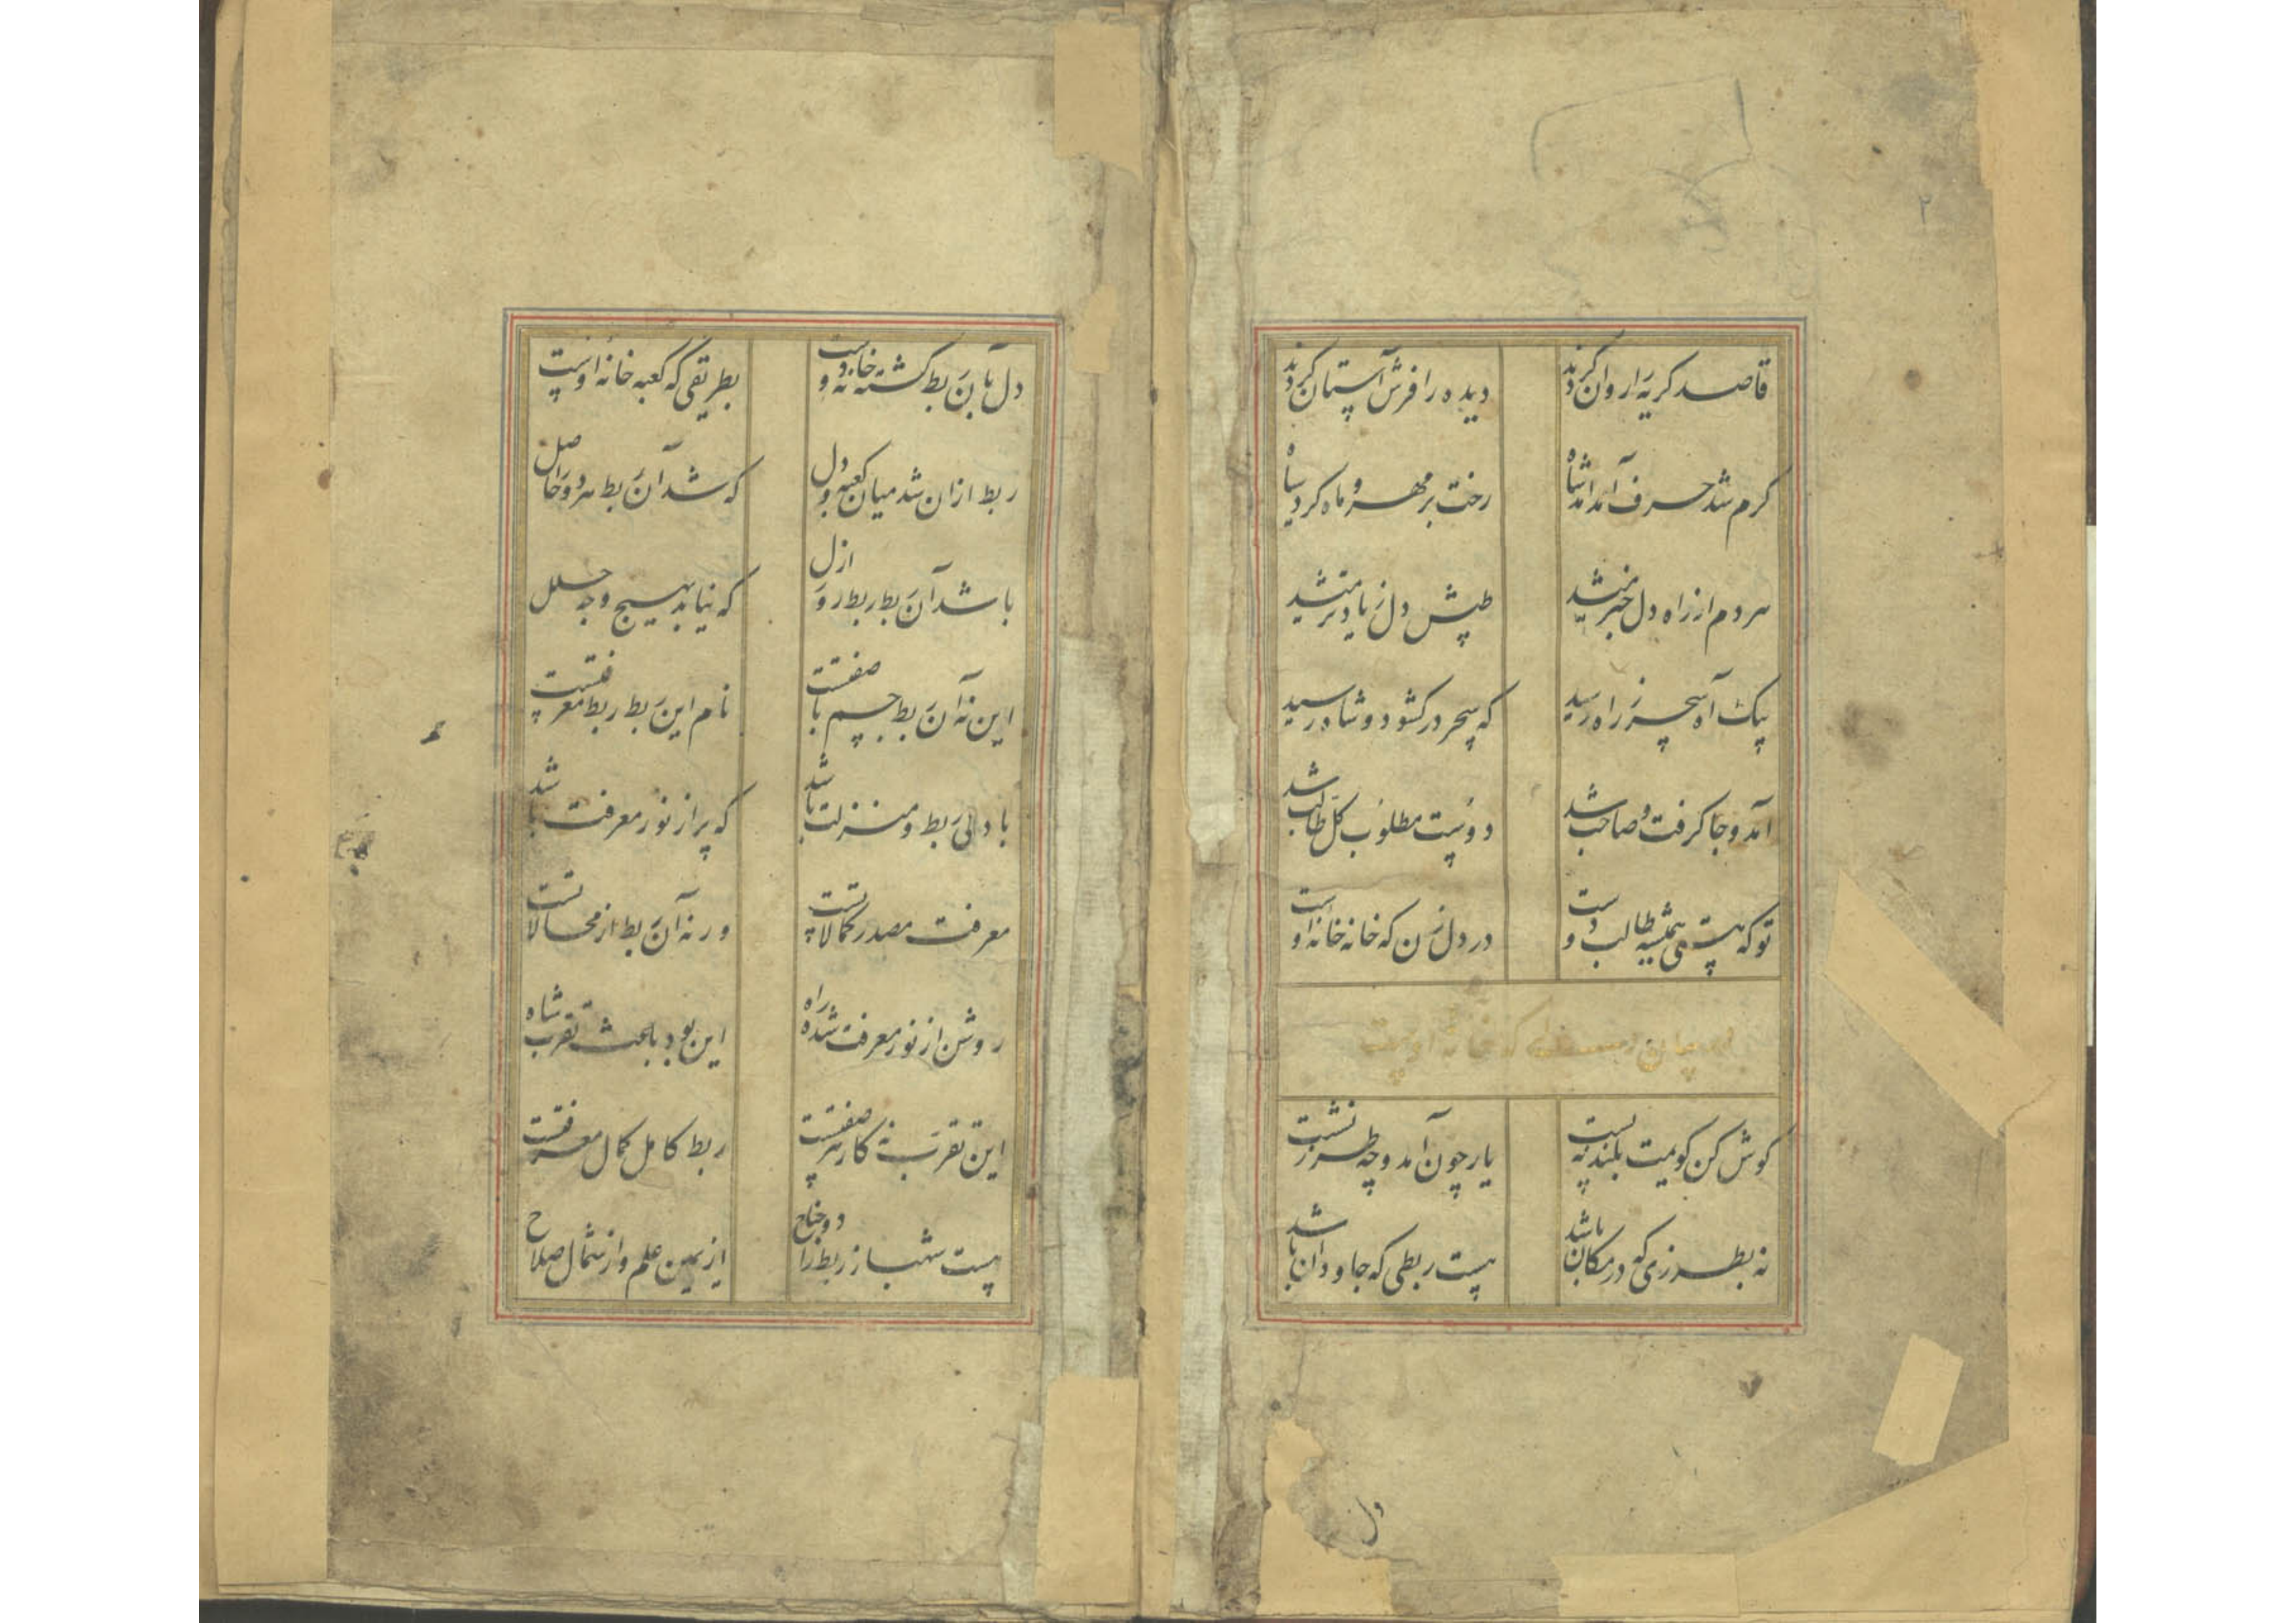 ۲
قاصد کریه را روان کردند دیده را فرش آستان کردند
کرم شد حرف آمد آمد شاه رخت بر مهر و ماه کرد سیاه
هر دم از راه دل خبر میشد طپش دل زیادتر میشد
پیک آه سحر ز راه رسید که سحر در کشود و شاه رسید
آمد و جا کرفت و صاحب شد دوست مطلوب کل طالب شد
تو که هستی همیشه طالب دوست در دل زن که خانه خانه اوست
که خانه اوست
کوش کن کویمت بلند نه پست یار چون آمد و چه طرز نشست
نه بطرزی که در مکان باشد هست ربطی که جاودان باشد
دل
دل بآن ربط کشته خانه دوست بطریقی که کعبه خانه اوست
ربط ازان شد میان کعبه و دل که شد آن ربط هر دو را حاصل
باشد آن ربط ربط روز ازل که نیابد بهیچ وجه خلل
این نه آن ربط جسم با صفتست نام این ربط ربط معرفتست
با دلی ربط و منزلت باشد که پر از نور معرفت باشد
معرفت مصدر کمالاتست ورنه آن ربط از محالاتست
روشن از نور معرفت شده راه این بود باعث تقرب شاه
این تقرب نه کار هر صفتست ربط کامل کمال معرفتست
هست شهباز ربط را دو جناح از یمین علم و از شمال صلاح